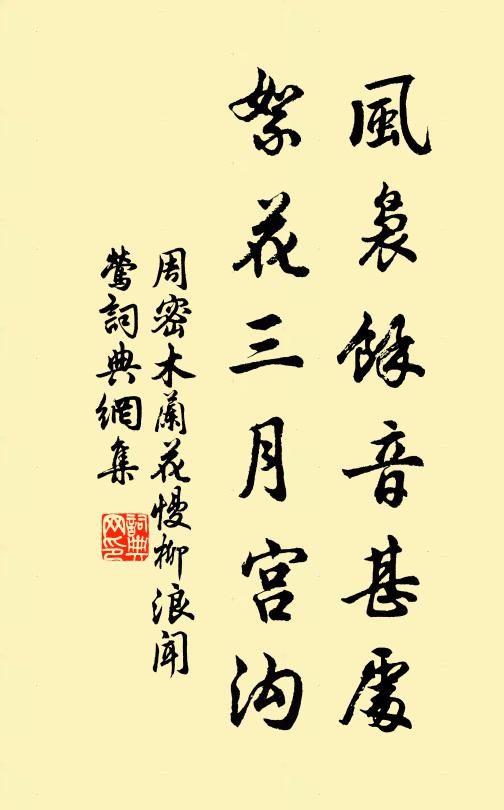 風裊餘音甚處
絮花三月宮溝
周密木蘭花慢柳浪聞
鶯詞典網集
詞典
网印